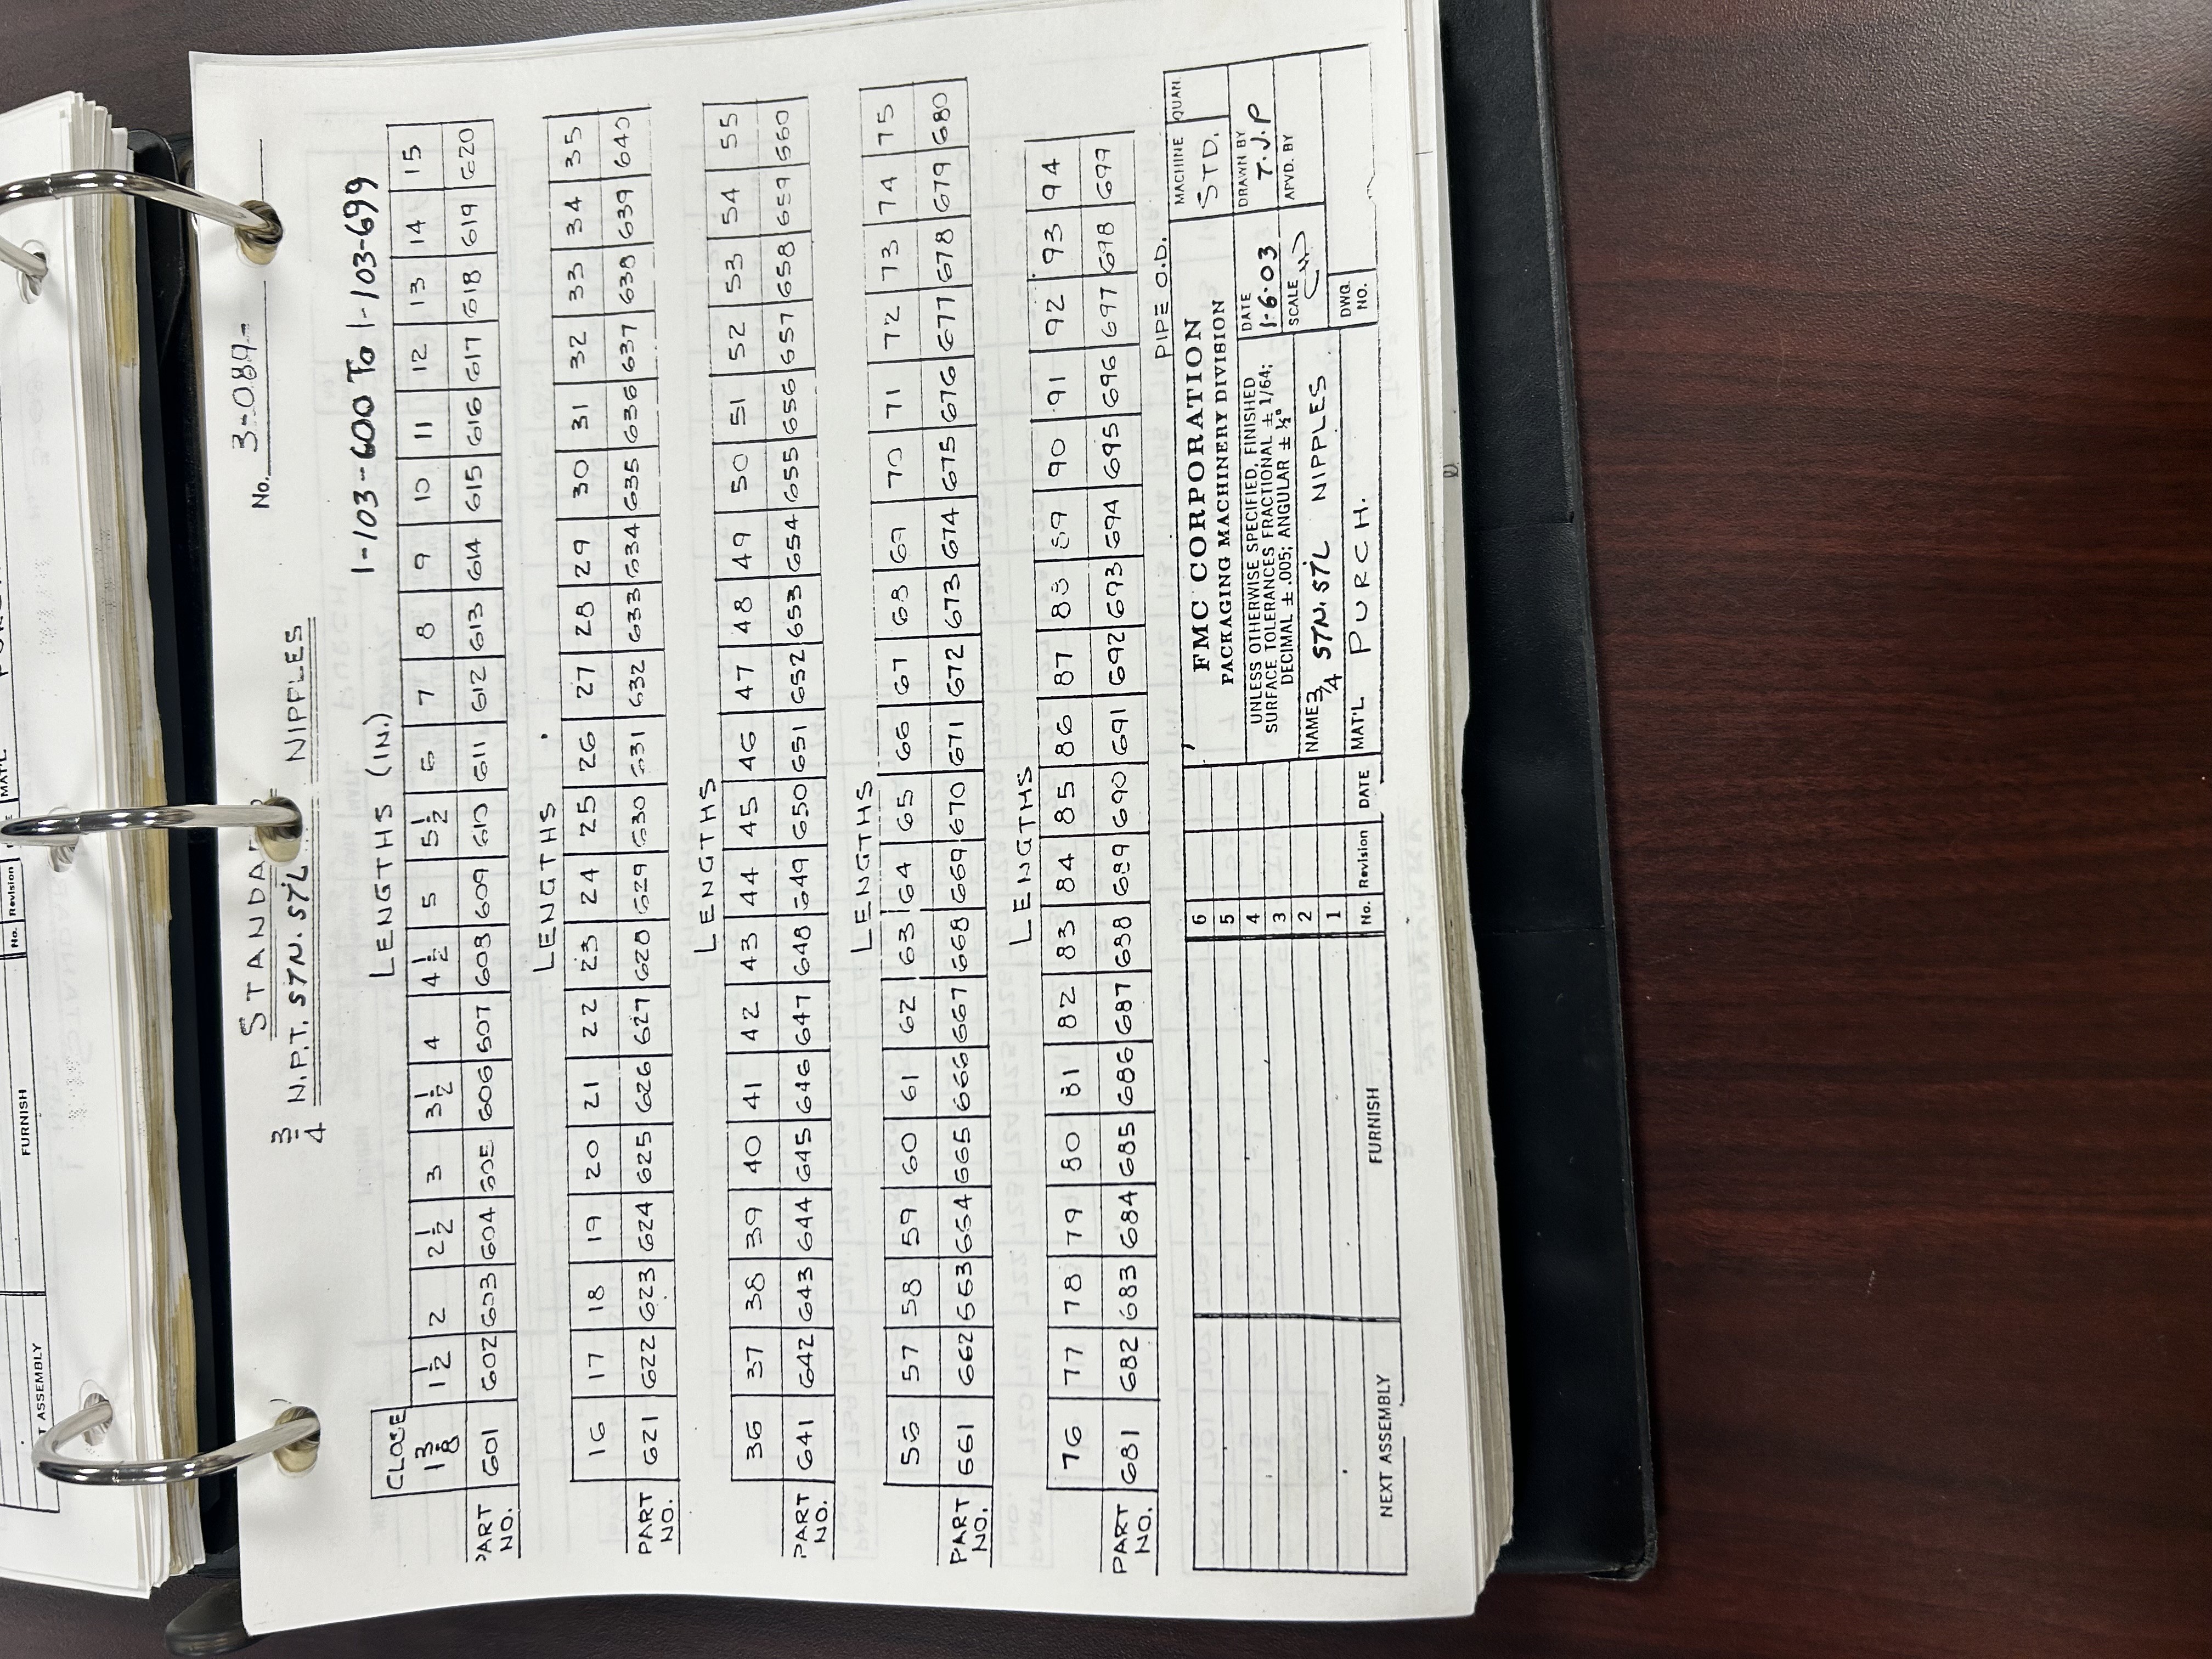 T ASSEMBLY
FURNISH
No. Revision
MAT'L.
STANDARD
No. 3-089-
3/4 N.P.T. STN. STL NIPPLES
1-103-600 To 1-103-699
LENGTHS (IN.)
CLOSE
1 3/8 1 1/2 2 2 1/2 3 3 1/2 4 4 1/2 5 5 1/2 6 7 8 9 10 11 12 13 14 15
PART NO. 601 602 603 604 605 606 607 608 609 610 611 612 613 614 615 616 617 618 619 620
LENGTHS
16 17 18 19 20 21 22 23 24 25 26 27 28 29 30 31 32 33 34 35
PART NO. 621 622 623 624 625 626 627 628 629 630 631 632 633 634 635 636 637 638 639 640
LENGTHS
36 37 38 39 40 41 42 43 44 45 46 47 48 49 50 51 52 53 54 55
PART NO. 641 642 643 644 645 646 647 648 649 650 651 652 653 654 655 656 657 658 659 660
LENGTHS
56 57 58 59 60 61 62 63 64 65 66 67 68 69 70 71 72 73 74 75
PART NO. 661 662 663 664 665 666 667 668 669 670 671 672 673 674 675 676 677 678 679 680
LENGTHS
76 77 78 79 80 81 82 83 84 85 86 87 88 89 90 91 92 93 94
PART NO. 681 682 683 684 685 686 687 688 689 690 691 692 693 694 695 696 697 698 699
PIPE O.D.
6
5
4
3
2
1
NEXT ASSEMBLY
FURNISH
No. Revision DATE
FMC CORPORATION
PACKAGING MACHINERY DIVISION
UNLESS OTHERWISE SPECIFIED, FINISHED
SURFACE TOLERANCES FRACTIONAL ± 1/64;
DECIMAL ± .005; ANGULAR ± ½°
NAME 3/4 STN. STL NIPPLES
MAT'L. PURCH.
MACHINE
STD.
QUAN.
DATE
1-6-03
DRAWN BY
T.J.P
SCALE
APVD. BY
DWG. NO.